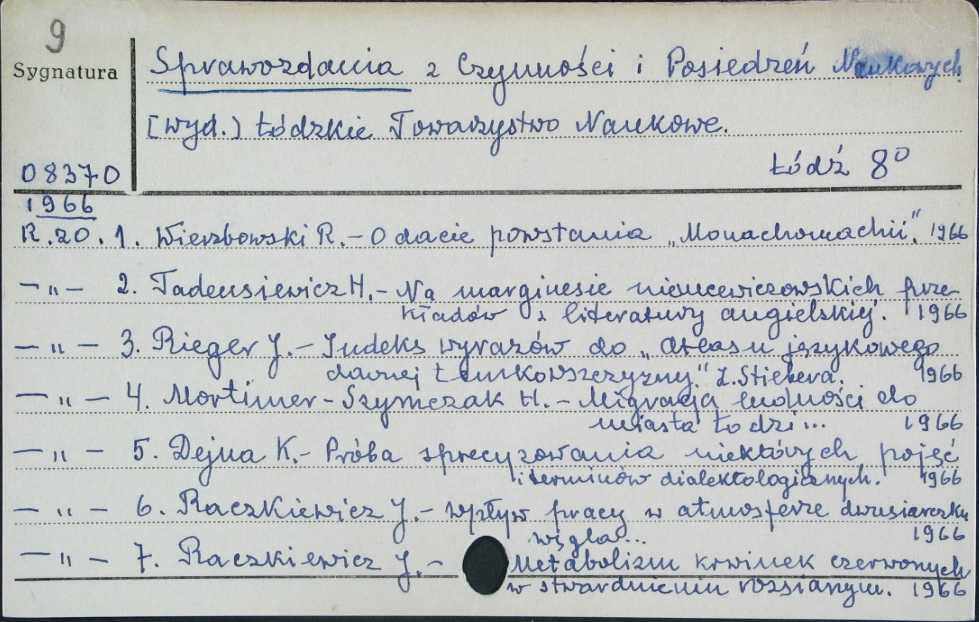 9
Sygnatura
Sprawozdania z Czynności i Posiedzeń Naukowych
[wyd.) Łódzkie Towarzystwo Naukowe.
Łódź 8°
08370
1966
R.20. 1. Wierzbowski R. - O dacie powstania „Monachomachii". 1966
— " — 2. Tadeusiewicz H. - Na marginesie niemcewiczowskich prze-
kładów z literatury angielskiej. 1966
— " — 3. Rieger J. - Indeks wyrazów do „Atlasu językowego
dawnej Łemkowszczyzny." Z. Stiebera. 1966
— " — 4. Mortimer-Szymczak H. - Migracja ludności do
miasta Łodzi... 1966
— " — 5. Dejna K. - Próba sprecyzowania niektórych pojęć
i terminów dialektologicznych. 1966
— " — 6. Raczkiewicz J. - Wpływ pracy w atmosferze dwusiarczku
węgla... 1966
— " — 7. Raczkiewicz J. - Metabolizm krwinek czerwonych
w stwardnieniu rozsianym. 1966